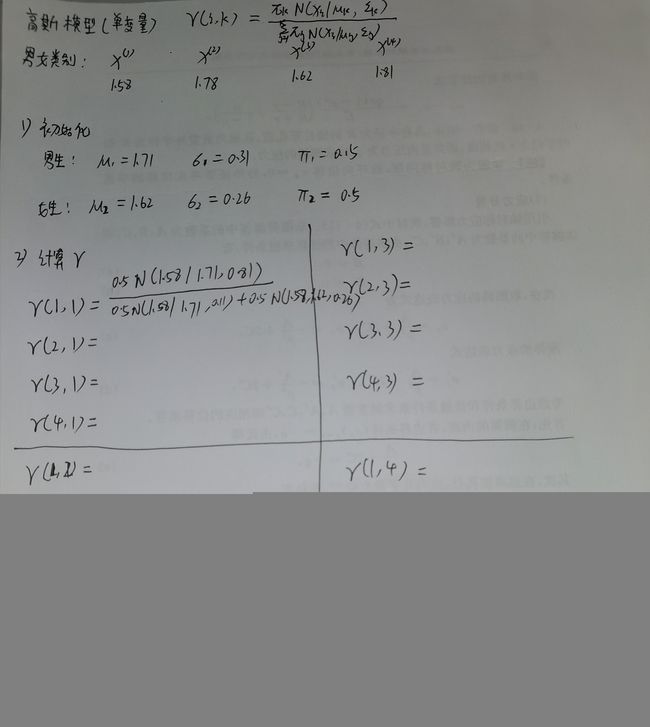 高斯模型(单变量) γ(i,k) = πk N(xi/μk, Σk) / Σ πj N(xi/μj, Σj)
男女类别: X⁽¹⁾ X⁽²⁾ X⁽³⁾ X⁽⁴⁾
1.58 1.78 1.62 1.81
1) 初始化
男生: μ1=1.71 σ1=0.31 π1=0.5
女生: μ2=1.62 σ2=0.26 π2=0.5
2) 计算γ
γ(1,1) = 0.5N(1.58/1.71,0.31) / 0.5N(1.58/1.71,0.11)+0.5N(1.58,1.62,0.26)
γ(2,1)=
γ(3,1)=
γ(4,1)=
γ(1,3) =
γ(2,3)=
γ(3.3) =
γ(4,3) =
γ(1,2) =
γ(1,4) =